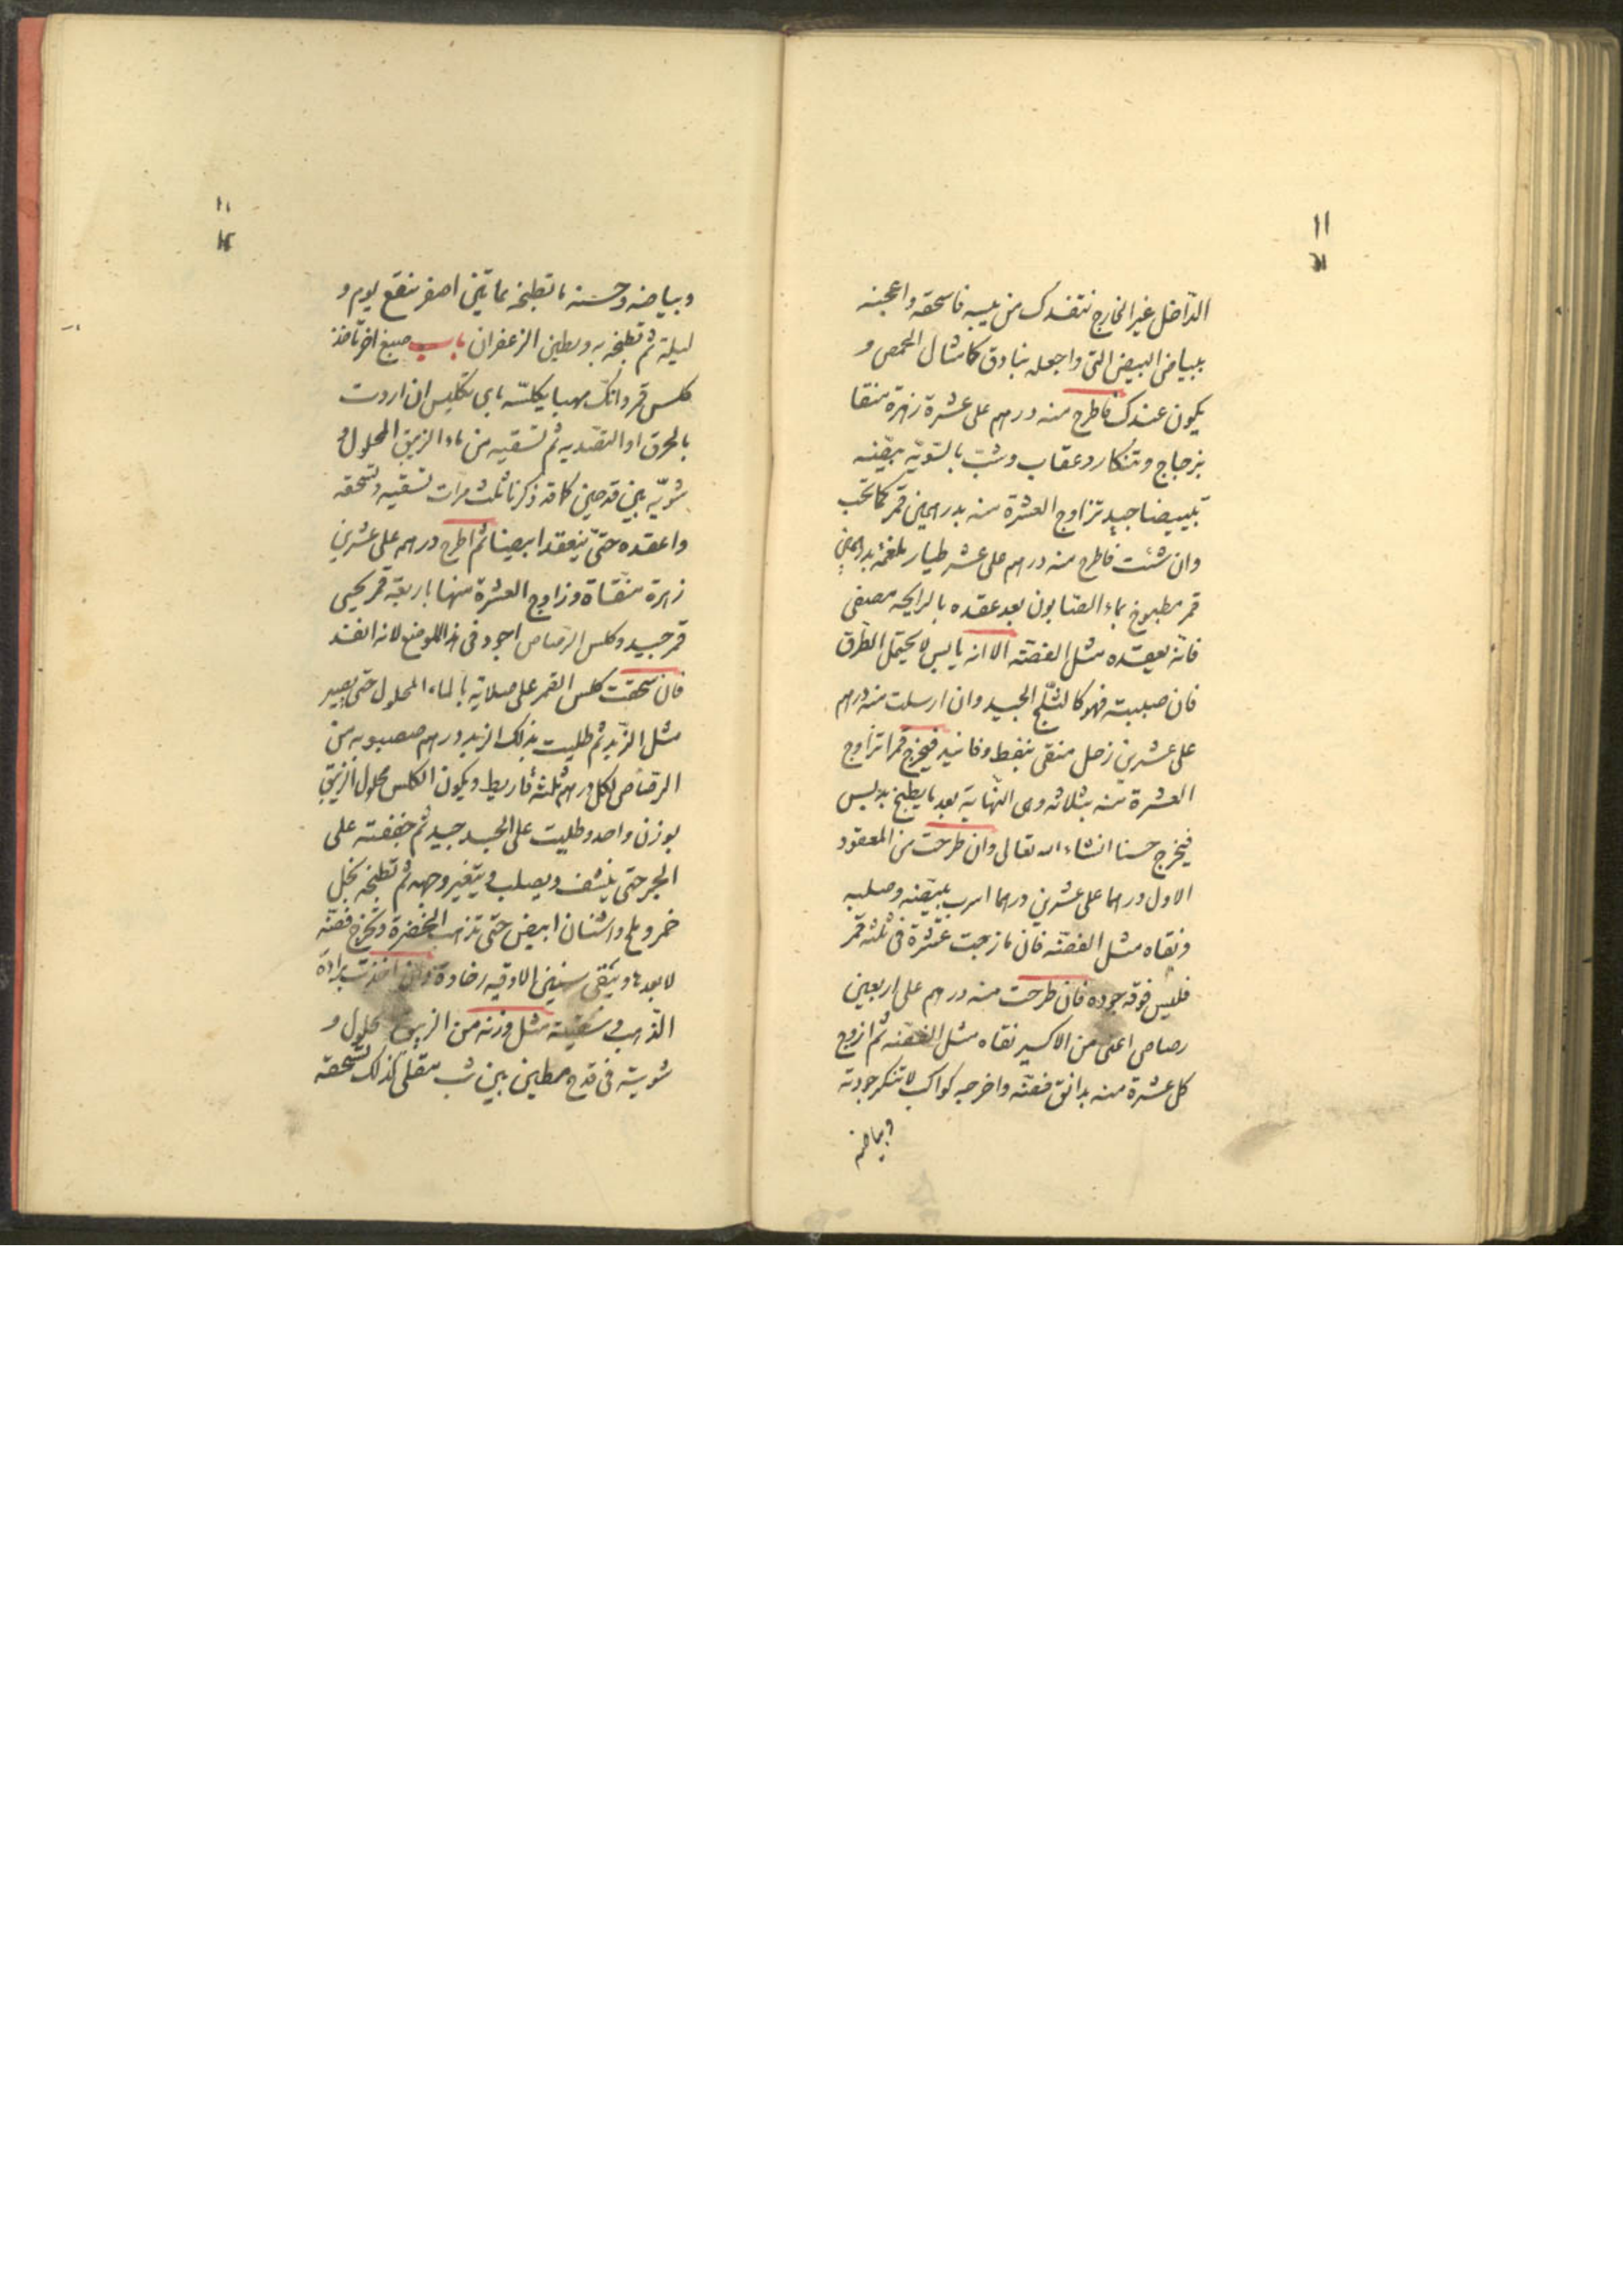 ١١
الداخل غير الخارج نتفدك من يبسه فاسحقه واعجنه
ببياض البيض التى واجعله بنادق كامثال الحمص و
يكون عندك فاطرح منه درهم على عشرة زهرة منقا
بزجاج وتنكار وعقاب وشب بالسّويّة يبيّضه
تبييضا جيد تزاوج العشرة منه بدرهمين قمر كما تحب
وان شئت فاطرح منه درهم على عشر طيار ملغمة بدرهمين
قمر مطبوخ بماء الصابون بعد عقده بالرايحه مصفى
فانه يعقده مثل الفضّه الا انه يابس لا يحتمل الطرق
فان صببته فهو كالثلج الجيد وان ارسلت منه درهم
على عشرين زحل منقى بنفط وفانيد فيخرج قمرا تزاوج
العشرة منه بثلاثه وهى النهاية بعد ما يطبخ بدبس
فيخرج حسنا انشاء الله تعالى وان طرحت من المعقود
الاول درهما على عشرين درهما اسرب بيّضه وصلبه
ونقاه مثل الفضّه فان مازجت عشرة فى ثلثه قمر
فليس فوقه جوده فان طرحت منه درهم على اربعين
رصاص اعلى من الاكسير نقاه مثل الفضّه ثم ازوج
كل عشرة منه بدانق فضّه واخرجه كواكب لا تنكر جودته
وبياضه
١١
وبياضه وحسنه ما تطبخه بماء تين اصفر منقع يوم و
ليلة ثم تطبخه به وبطين الزعفران باب صبغ اخر تأخذ
كلس قمر وانك مهبا يكلسه باى تكليس ان اردت
بالحرق او التصديه ثم تسقيه من ماء الزيبق المحلول و
شويّه بين قدحين كما قد ذكرنا ثلث مرات تسقيه وتسحقه
واعقده حتى ينعقد ابيضا ثم اطرح درهم على عشرين
زهرة منقاة وزاوج العشرة منها باربعة قمر يجيى
قمر جيد وكلس الرصاص اجود فى هذا الموضع لانه انفذ
فان سحقت كلس القمر على صلاية بالماء المحلول حتى يصير
مثل الزبد ثم طليت بذلك الزبد درهم مصبوبه من
الرصاص لكل درهم ثلثة قاريط ويكون الكلس محلول الزيبق
بوزن واحد وطليت على الجسد جيد ثم جففته على
الجمر حتى ينشف ويصلب ويتغير وجهه ثم تطبخه بخل
خمر وملح واشنان ابيض حتى تذهب الخضرة وتخرج فضّه
لا بعدها ويبقى سنين الا وفيه رخاوة وان اخذت برادة
الذهب وسقيته مثل وزنه من الزيبق محلول و
شويته فى قدح مطين بين شب مقلى كذلك تسحقه